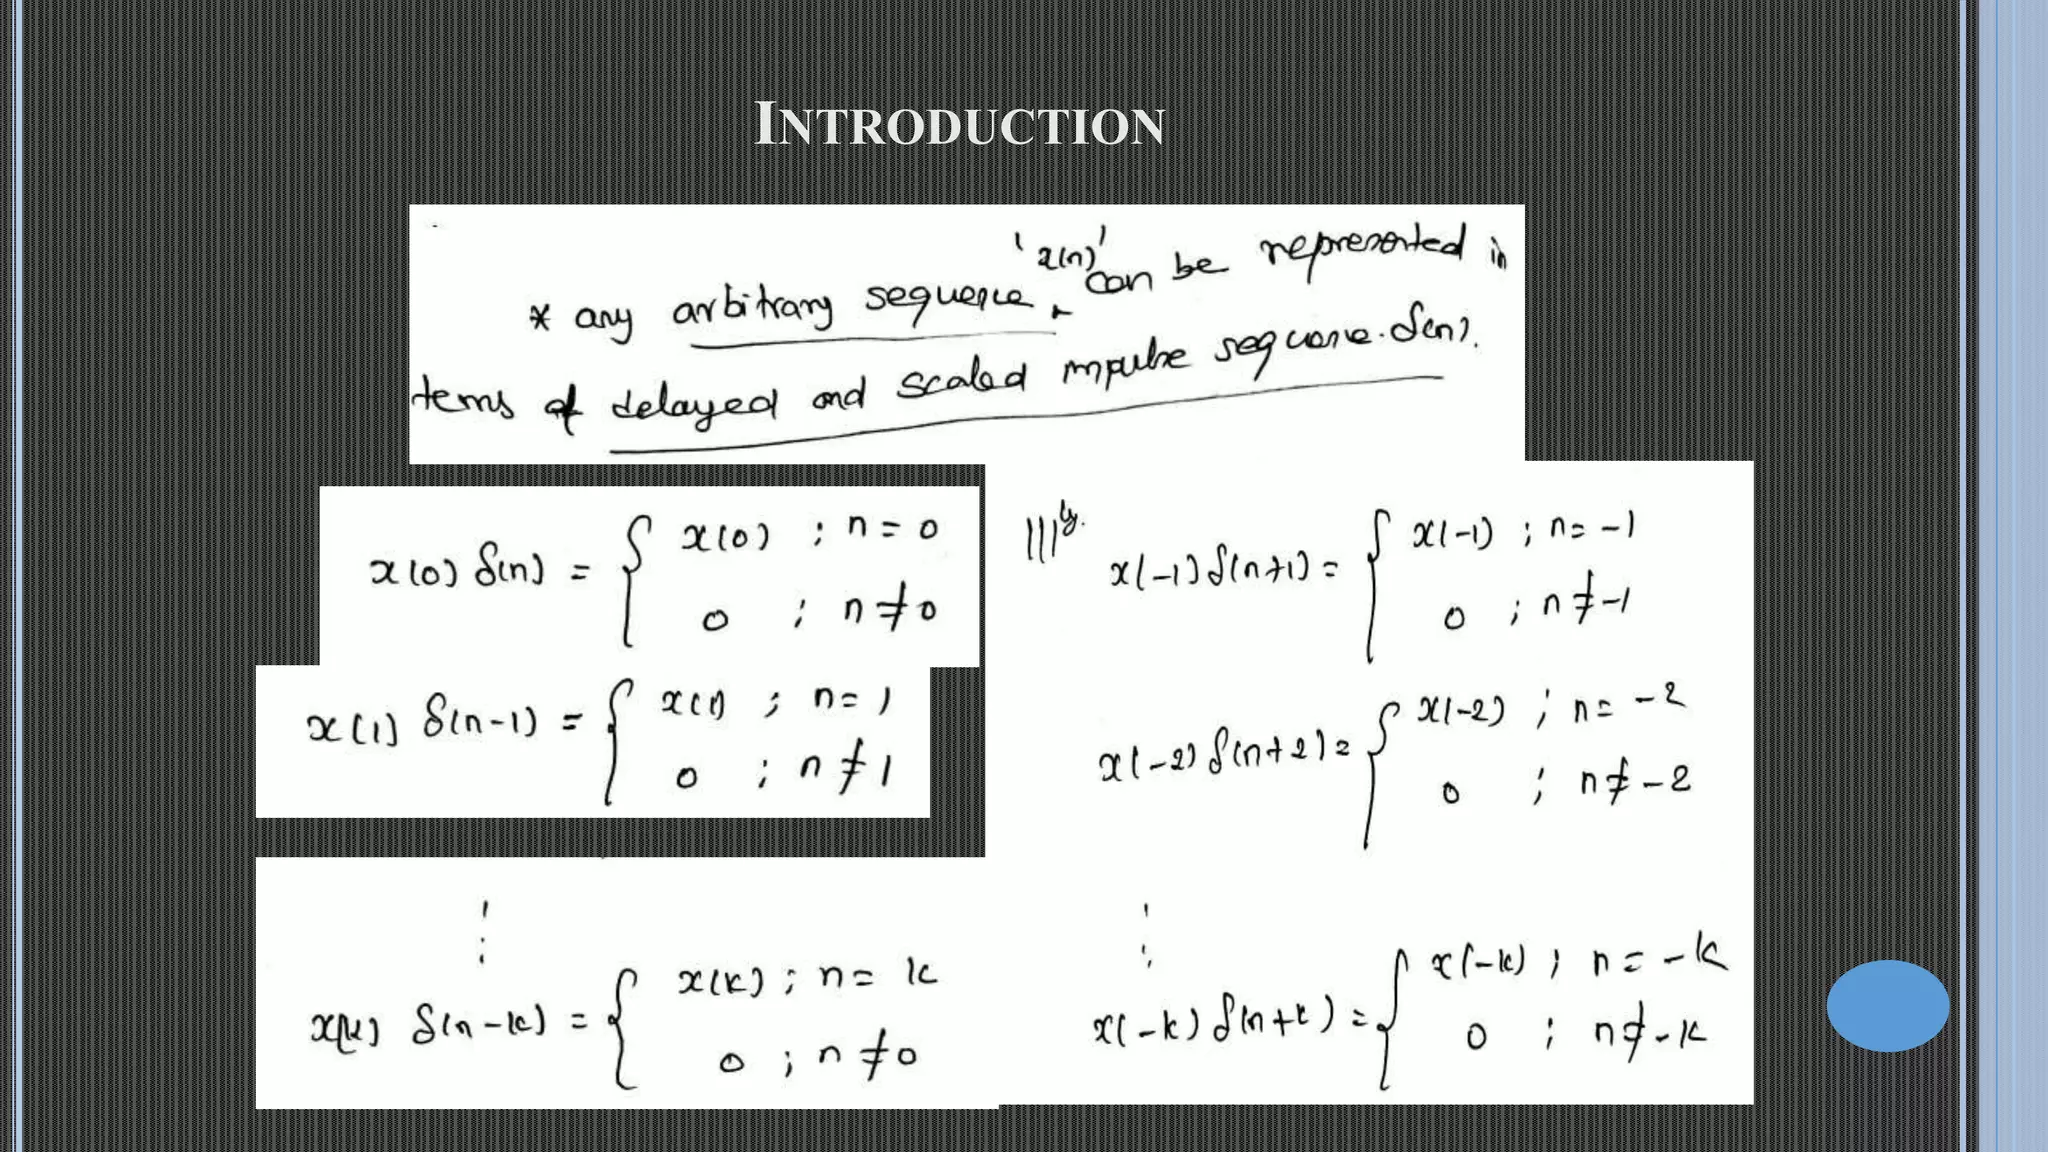 INTRODUCTION
'x(n)'
* any arbitrary sequence can be represented in
terms of delayed and scaled impulse sequence. δ(n).
x(0) δ(n) = { x(0) ; n = 0
0 ; n ≠ 0
x(1) δ(n-1) = { x(1) ; n = 1
0 ; n ≠ 1
⋮
x(k) δ(n-k) = { x(k) ; n = k
0 ; n ≠ 0
|||ly.
x(-1) δ(n+1) = { x(-1) ; n = -1
0 ; n ≠ -1
x(-2) δ(n+2) = { x(-2) ; n = -2
0 ; n ≠ -2
⋮
x(-k) δ(n+k) = { x(-k) ; n = -k
0 ; n ≠ -k